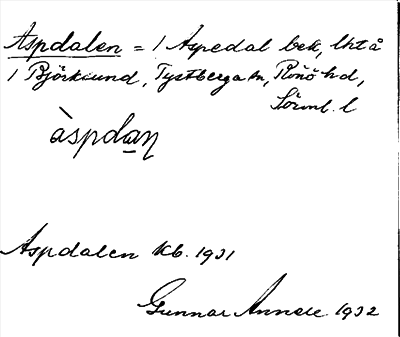 Aspdalen = 1 Aspedal bek, lht å
1 Björksund, Tystberga sn, Rönö hd,
Sörml. l
àspdaṇ
Aspdalen kb. 1931
Gunnar 1932